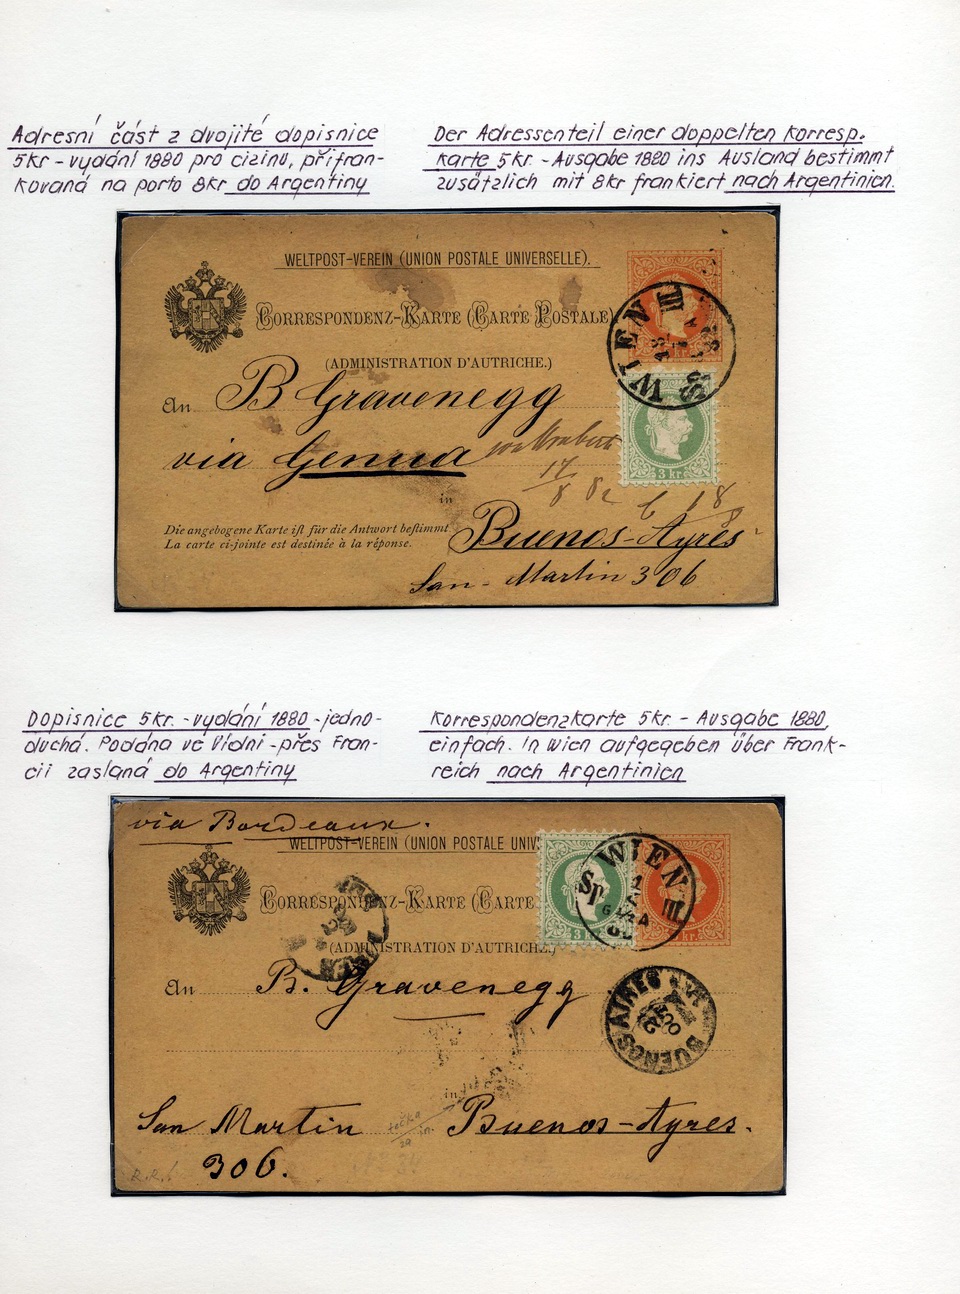 Adresní část z dvojité dopisnice
5kr - vydání 1880 pro cizinu, přifran-
kovaná na porto 8kr do Argentiny
Der Adressenteil einer doppelten Korresp.
karte 5kr. - Ausgabe 1880 ins Ausland bestimmt
zusätzlich mit 8kr frankiert nach Argentinien.
WELTPOST-VEREIN (UNION POSTALE UNIVERSELLE).
CORRESPONDENZ-KARTE (CARTE POSTALE)
(ADMINISTRATION D'AUTRICHE.)
WIEN III
3 kr.
An B Gravenegg
via Genua
17/8 82
in
Die angebogene Karte ist für die Antwort bestimmt
La carte ci-jointe est destinée à la réponse.
Buenos-Ayres
San-Martin 306
Dopisnice 5kr. - vydání 1880 - jedno-
duchá. Podána ve Vídni - přes Fran-
cii zaslaná do Argentiny
Korrespondenzkarte 5kr. - Ausgabe 1880,
einfach. In Wien aufgegeben über Frank-
reich nach Argentinien
via Bordeaux.
WELTPOST-VEREIN (UNION POSTALE UNIV
CORRESPONDENZ-KARTE (CARTE
(ADMINISTRATION D'AUTRICHE.)
WIEN III
3 kr.
An B. Gravenegg
BUENOS AIRES
in
San Martin Buenos-Ayres.
306.
R.R.!